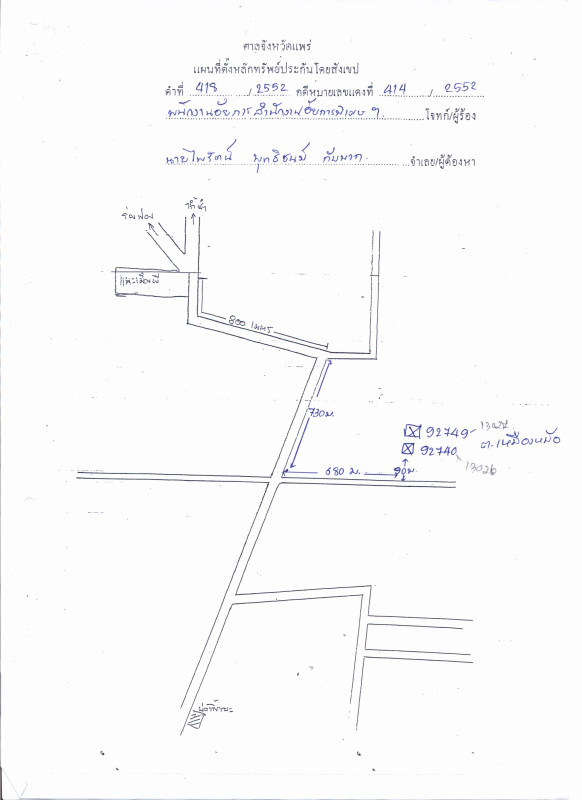 ศาลจังหวัดแพร่
แผนที่ตั้งหลักทรัพย์ประกันโดยสังเขป
ดำที่ 418 / 2552 คดีหมายเลขแดงที่ 414 / 2552
พนักงานอัยการสำนักงานอัยการพิเศษฯ โจทก์/ผู้ร้อง
นายไพรัตน์ พุทธิชนม์ กับพวก จำเลย/ผู้ต้องหา
ร่องฟอง
น้ำชำ
แพะเมืองผี
800 เมตร
730 ม.
92749 13027
ต.เหมืองหม้อ
92740 13026
680 ม. 90 ม.